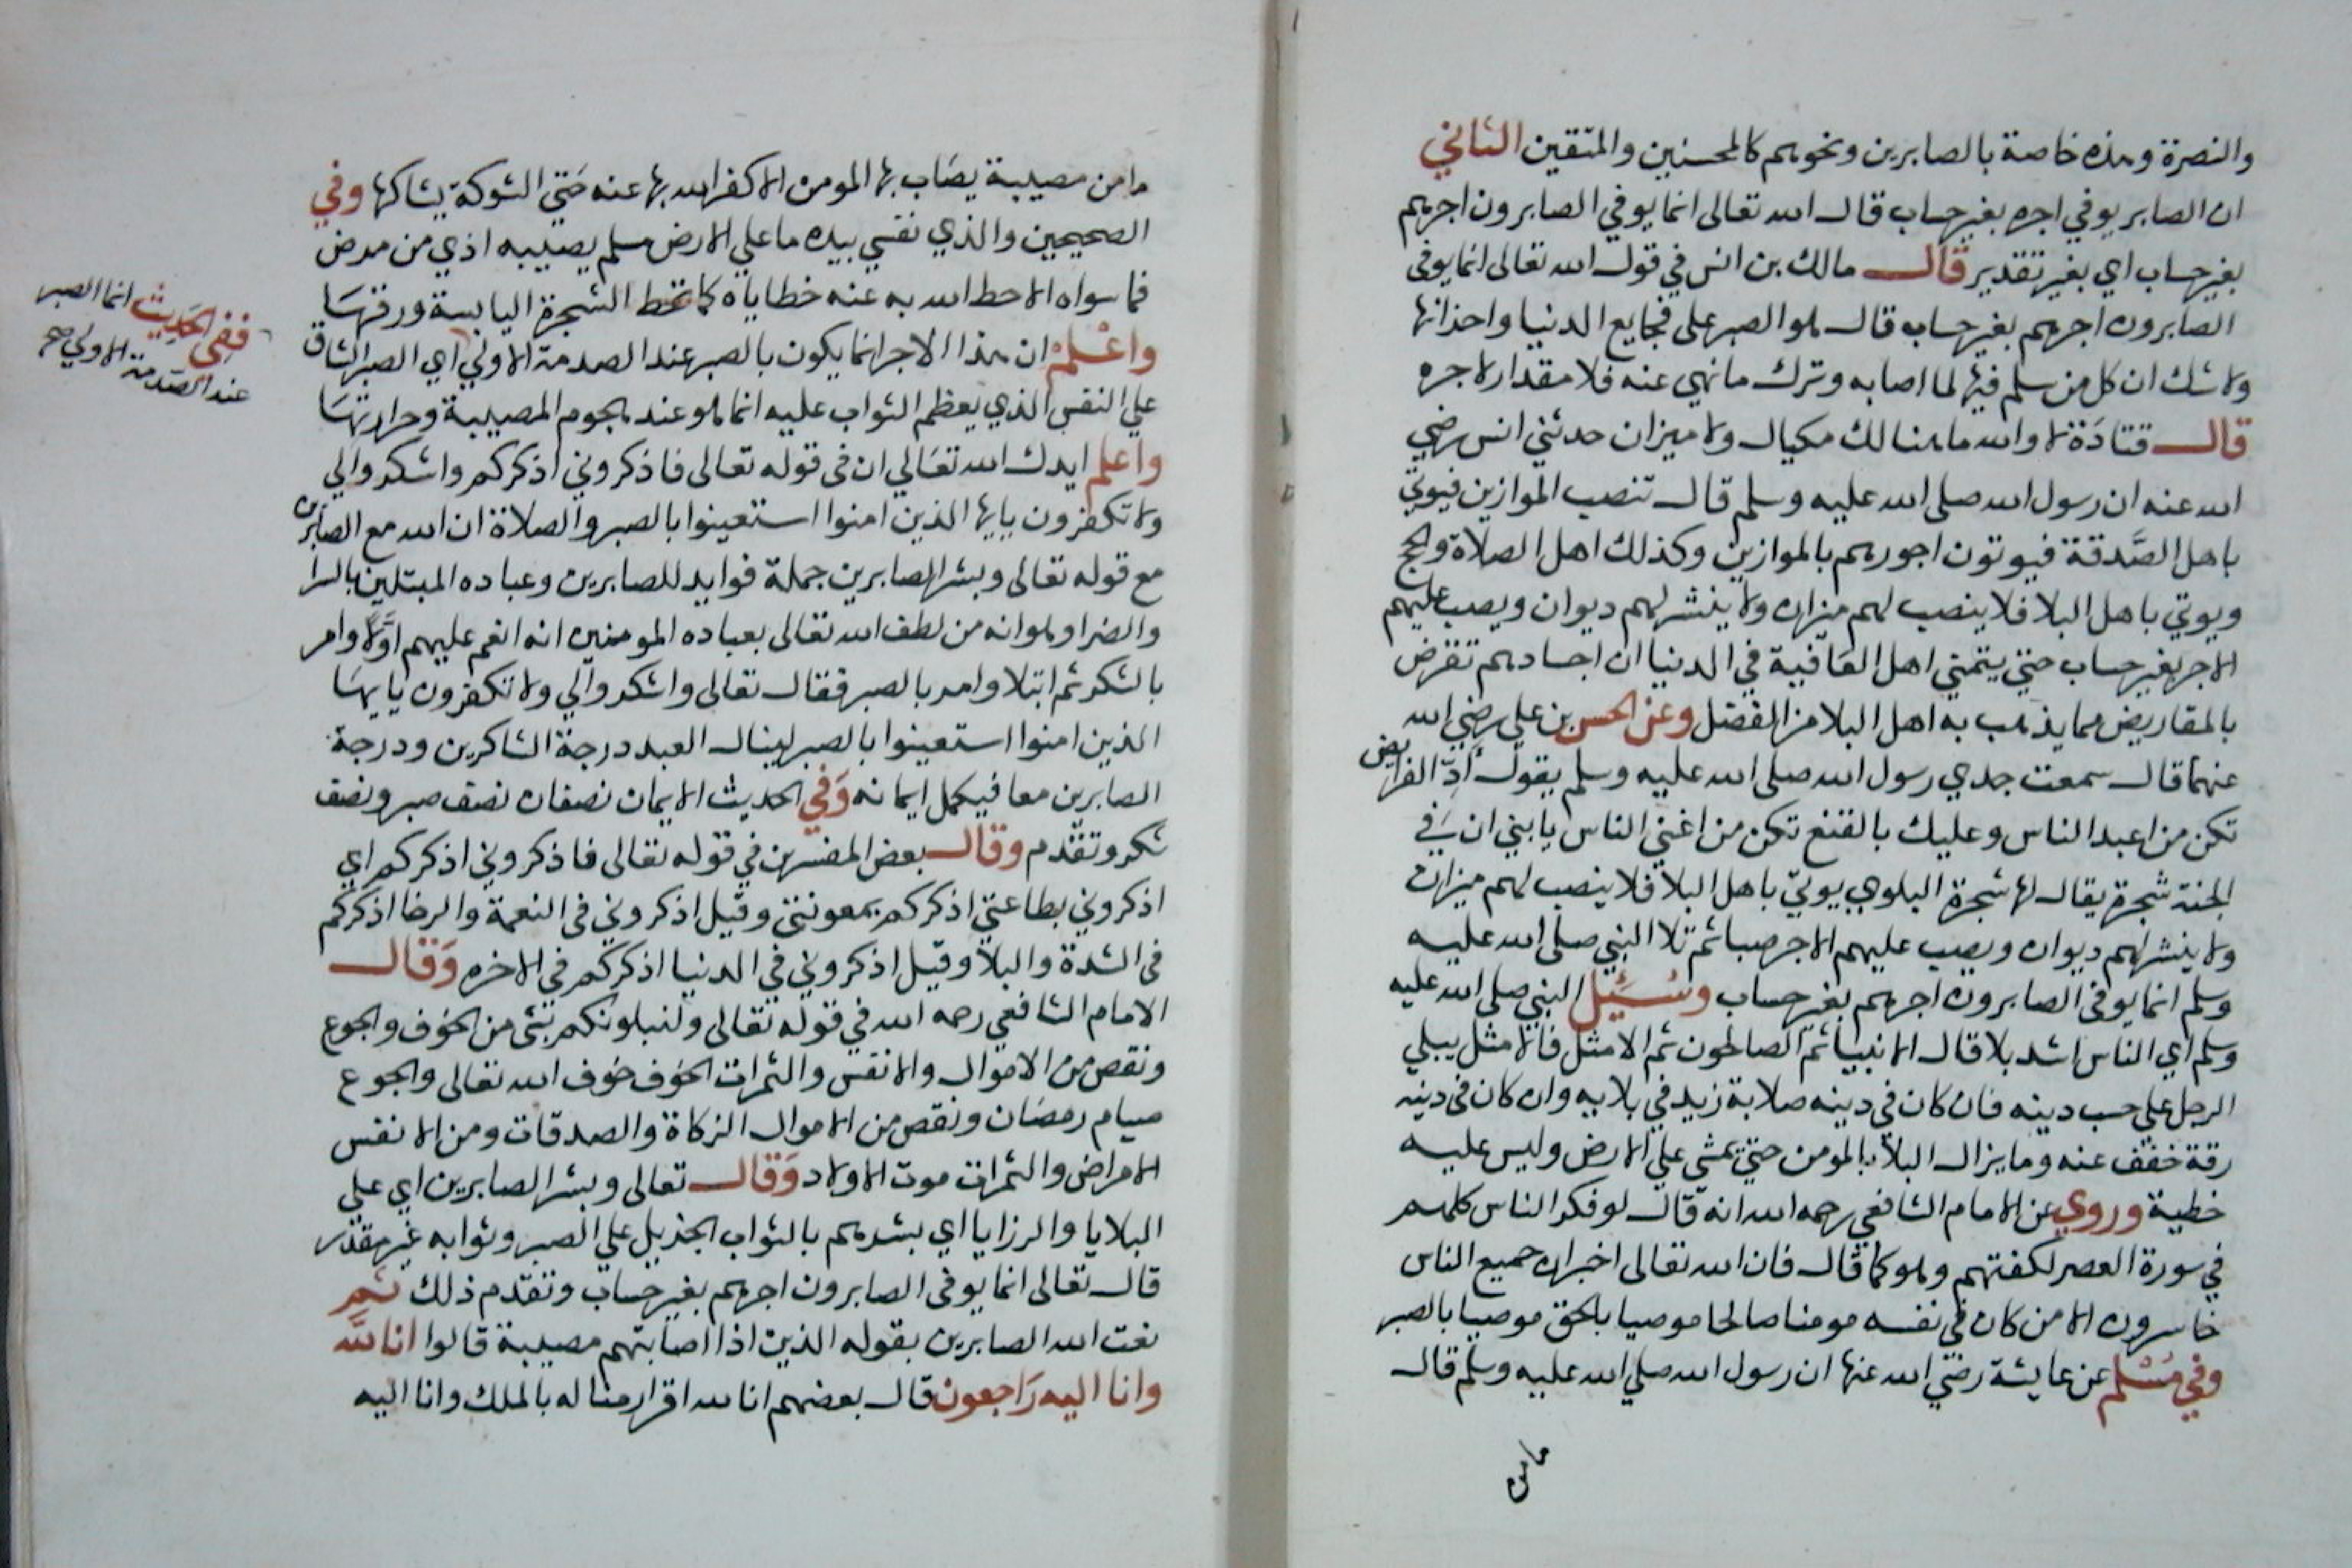 والنصرة وهذه خاصة بالصابرين ونحوهم كالمحسنين والمتقين الثاني
ان الصابر يوفي اجره بغير حساب قال الله تعالى انما يوفي الصابرون اجرهم
بغير حساب اي بغير تقدير قال مالك بن انس في قول الله تعالى انما يوفى
الصابرون اجرهم بغير حساب قال هو الصبر على فجايع الدنيا واحزانها
ولا شك ان كل من سلم فيها لما اصابه وترك ما نهي عنه فلا مقدار لاجره
قال قتادة لا والله ما هنالك مكيال ولا ميزان حدثني انس رضي
الله عنه ان رسول الله صلى الله عليه وسلم قال تنصب الموازين فيوتي
باهل الصَّدقة فيوتون اجورهم بالموازين وكذلك اهل الصلاة والحج
ويوتي باهل البلا فلا ينصب لهم ميزان ولا ينشر لهم ديوان ويصب عليهم
الاجر بغير حساب حتي يتمني اهل العافية في الدنيا ان اجسادهم تقرض
بالمقاريض مما يذهب به اهل البلا من الفضل وعن الحسن بن علي رضي الله
عنهما قال سمعت جدي رسول الله صلى الله عليه وسلم يقول أدّ الفرايض
تكن من اعبد الناس وعليك بالقنع تكن من اغني الناس يا بني ان في
الجنة شجرة يقال لها شجرة البلوي يوتيّ باهل البلا فلا ينصب لهم ميزان
ولا ينشر لهم ديوان ويصب عليهم الاجر صبا ثم تلا النبي صلى الله عليه
وسلم انما يوفى الصابرون اجرهم بغير حساب وسُئِل النبي صلى الله عليه
وسلم اي الناس اشد بلا قال الانبيا ثم الصالحون ثم الامثل فالامثل يبلي
الرجل علي حسب دينه فان كان في دينه صلابة زيد في بلايه وان كان في دينه
رقة خفف عنه وما يزال البلا بالمومن حتي يمشي علي الارض وليس عليه
خطية وروي عن الامام الشافعي رحمه الله انه قال لو فكر الناس كلهم
في سورة العصر لكفتهم وهو كما قال فان الله تعالى اخبر ان جميع الناس
خاسرون الا من كان في نفسه مومنا صالحا موصيا بالحق موصيا بالصبر
وفي مسلم عن عايشة رضي الله عنها ان رسول الله صلي الله عليه وسلم قال
ما من
ما من مصيبة يصاب بها المومن الا كفر الله بها عنه حتي الشوكة يشاكها وفي
الصحيحين والذي نفسي بيده ما علي الارض مسلم يصيبه اذي من مرض
فما سواه الا حط الله به عنه خطاياه كما تحط الشجرة اليابسة ورقها
واعلم ان هذا الاجر انما يكون بالصبر عند الصدمة الاولي اي الصبر الشاق
علي النفس الذي يعظم الثواب عليه انما هو عند هجوم المصيبة وحرارتها
واعلم ايدك الله تعالي ان في قوله تعالى فاذكروني اذكركم واشكروا لي
ولا تكفرون يايها الذين امنوا استعينوا بالصبر والصلاة ان الله مع الصابرين
مع قوله تعالى وبشر الصابرين جملة فوايد للصابرين وعباده المبتلين بالسرا
والضرا وهو انه من لطف الله تعالى بعباده المومنين انه انعم عليهم اوّلا وامر
بالشكر ثم ابتلا وامر بالصبر فقال تعالى واشكروا لي ولا تكفرون يايها
الذين امنوا استعينوا بالصبر لينال العبد درجة الشاكرين ودرجة
الصابرين معا فيكمل ايمانه وَفي الحديث الايمان نصفان نصف صبر ونصف
شكر وتقدم وقال بعض المفسرين في قوله تعالى فاذكروني اذكركم اي
اذكروني بطاعتي اذكركم بمعونتي وقيل اذكروني في النعمة والرخا اذكركم
في الشدة والبلا وقيل اذكروني في الدنيا اذكركم في الاخره وَقال
الامام الشافعي رحمه الله في قوله تعالى ولنبلونكم بشي من الخوف والجوع
ونقص من الاموال والانفس والثمرات الخوف خوف الله تعالى والجوع
صيام رمضان ونقص من الاموال الزكاة والصدقات ومن الانفس
الامراض والثمرات موت الاولاد وَقال تعالى وبشر الصابرين اي علي
البلايا والرزايا اي بشرهم بالثواب الجزيل علي الصبر وثوابه غير مقدر
قال تعالى انما يوفى الصابرون اجرهم بغير حساب وتقدم ذلك ثم
نعت الله الصابرين بقوله الذين اذا اصابتهم مصيبة قالوا انا لله
وانا اليه رَاجعون قال بعضهم انا لله اقرار منا له بالملك وانا اليه
ففي الحَديث انما الصبر
عند الصَّدمة الاولي صح